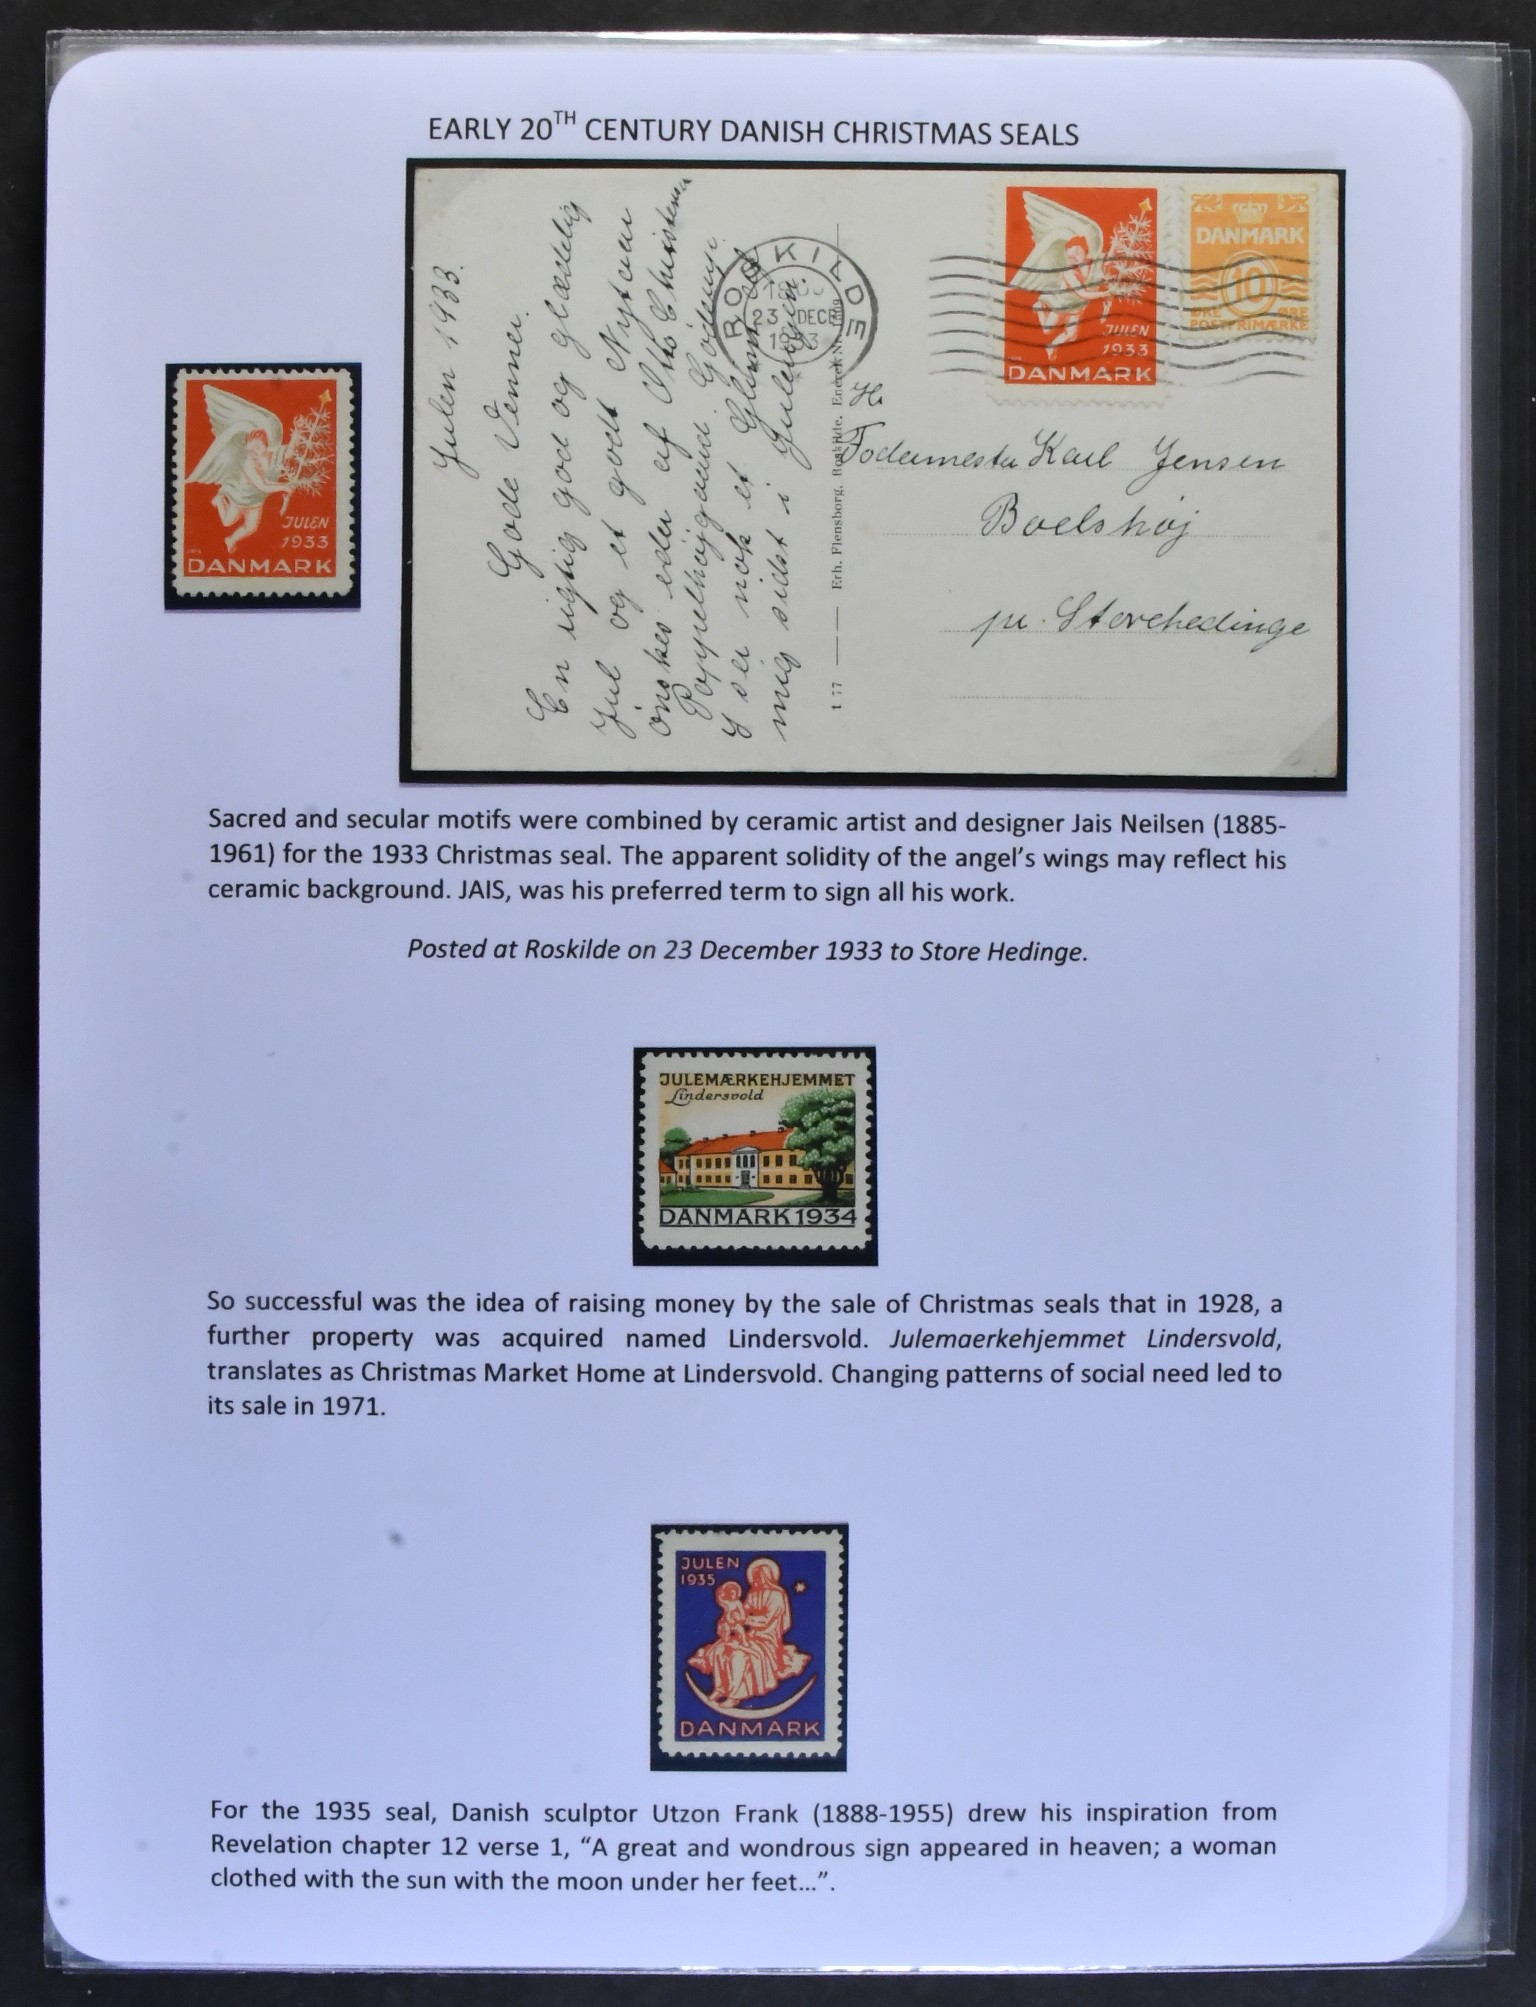 EARLY 20TH CENTURY DANISH CHRISTMAS SEALS
Julen 1933.
Gode Venner.
En rigtig god og glædelig
Jul og et godt Nytaar
önskes eder af Otto Christensen
Poppelhöjgaard. Gödenge.
y ser nok et Glimt af
mig sidst i Julen
ROSKILDE
23 DECB
1933
t 77
Erh. Flensborg, Roskilde. Eneret Nr.
JULEN
1933
DANMARK
DANMARK
10
ØRE ØRE
POSTFRIMÆRKE
Hr
Fodermester Karl Jensen
Boelshøj
pr. Storehedinge
JULEN
1933
DANMARK
Sacred and secular motifs were combined by ceramic artist and designer Jais Neilsen (1885-
1961) for the 1933 Christmas seal. The apparent solidity of the angel's wings may reflect his
ceramic background. JAIS, was his preferred term to sign all his work.
Posted at Roskilde on 23 December 1933 to Store Hedinge.
JULEMÆRKEHJEMMET
Lindersvold
DANMARK 1934
So successful was the idea of raising money by the sale of Christmas seals that in 1928, a
further property was acquired named Lindersvold. Julemaerkehjemmet Lindersvold,
translates as Christmas Market Home at Lindersvold. Changing patterns of social need led to
its sale in 1971.
JULEN
1935
DANMARK
For the 1935 seal, Danish sculptor Utzon Frank (1888-1955) drew his inspiration from
Revelation chapter 12 verse 1, "A great and wondrous sign appeared in heaven; a woman
clothed with the sun with the moon under her feet…".